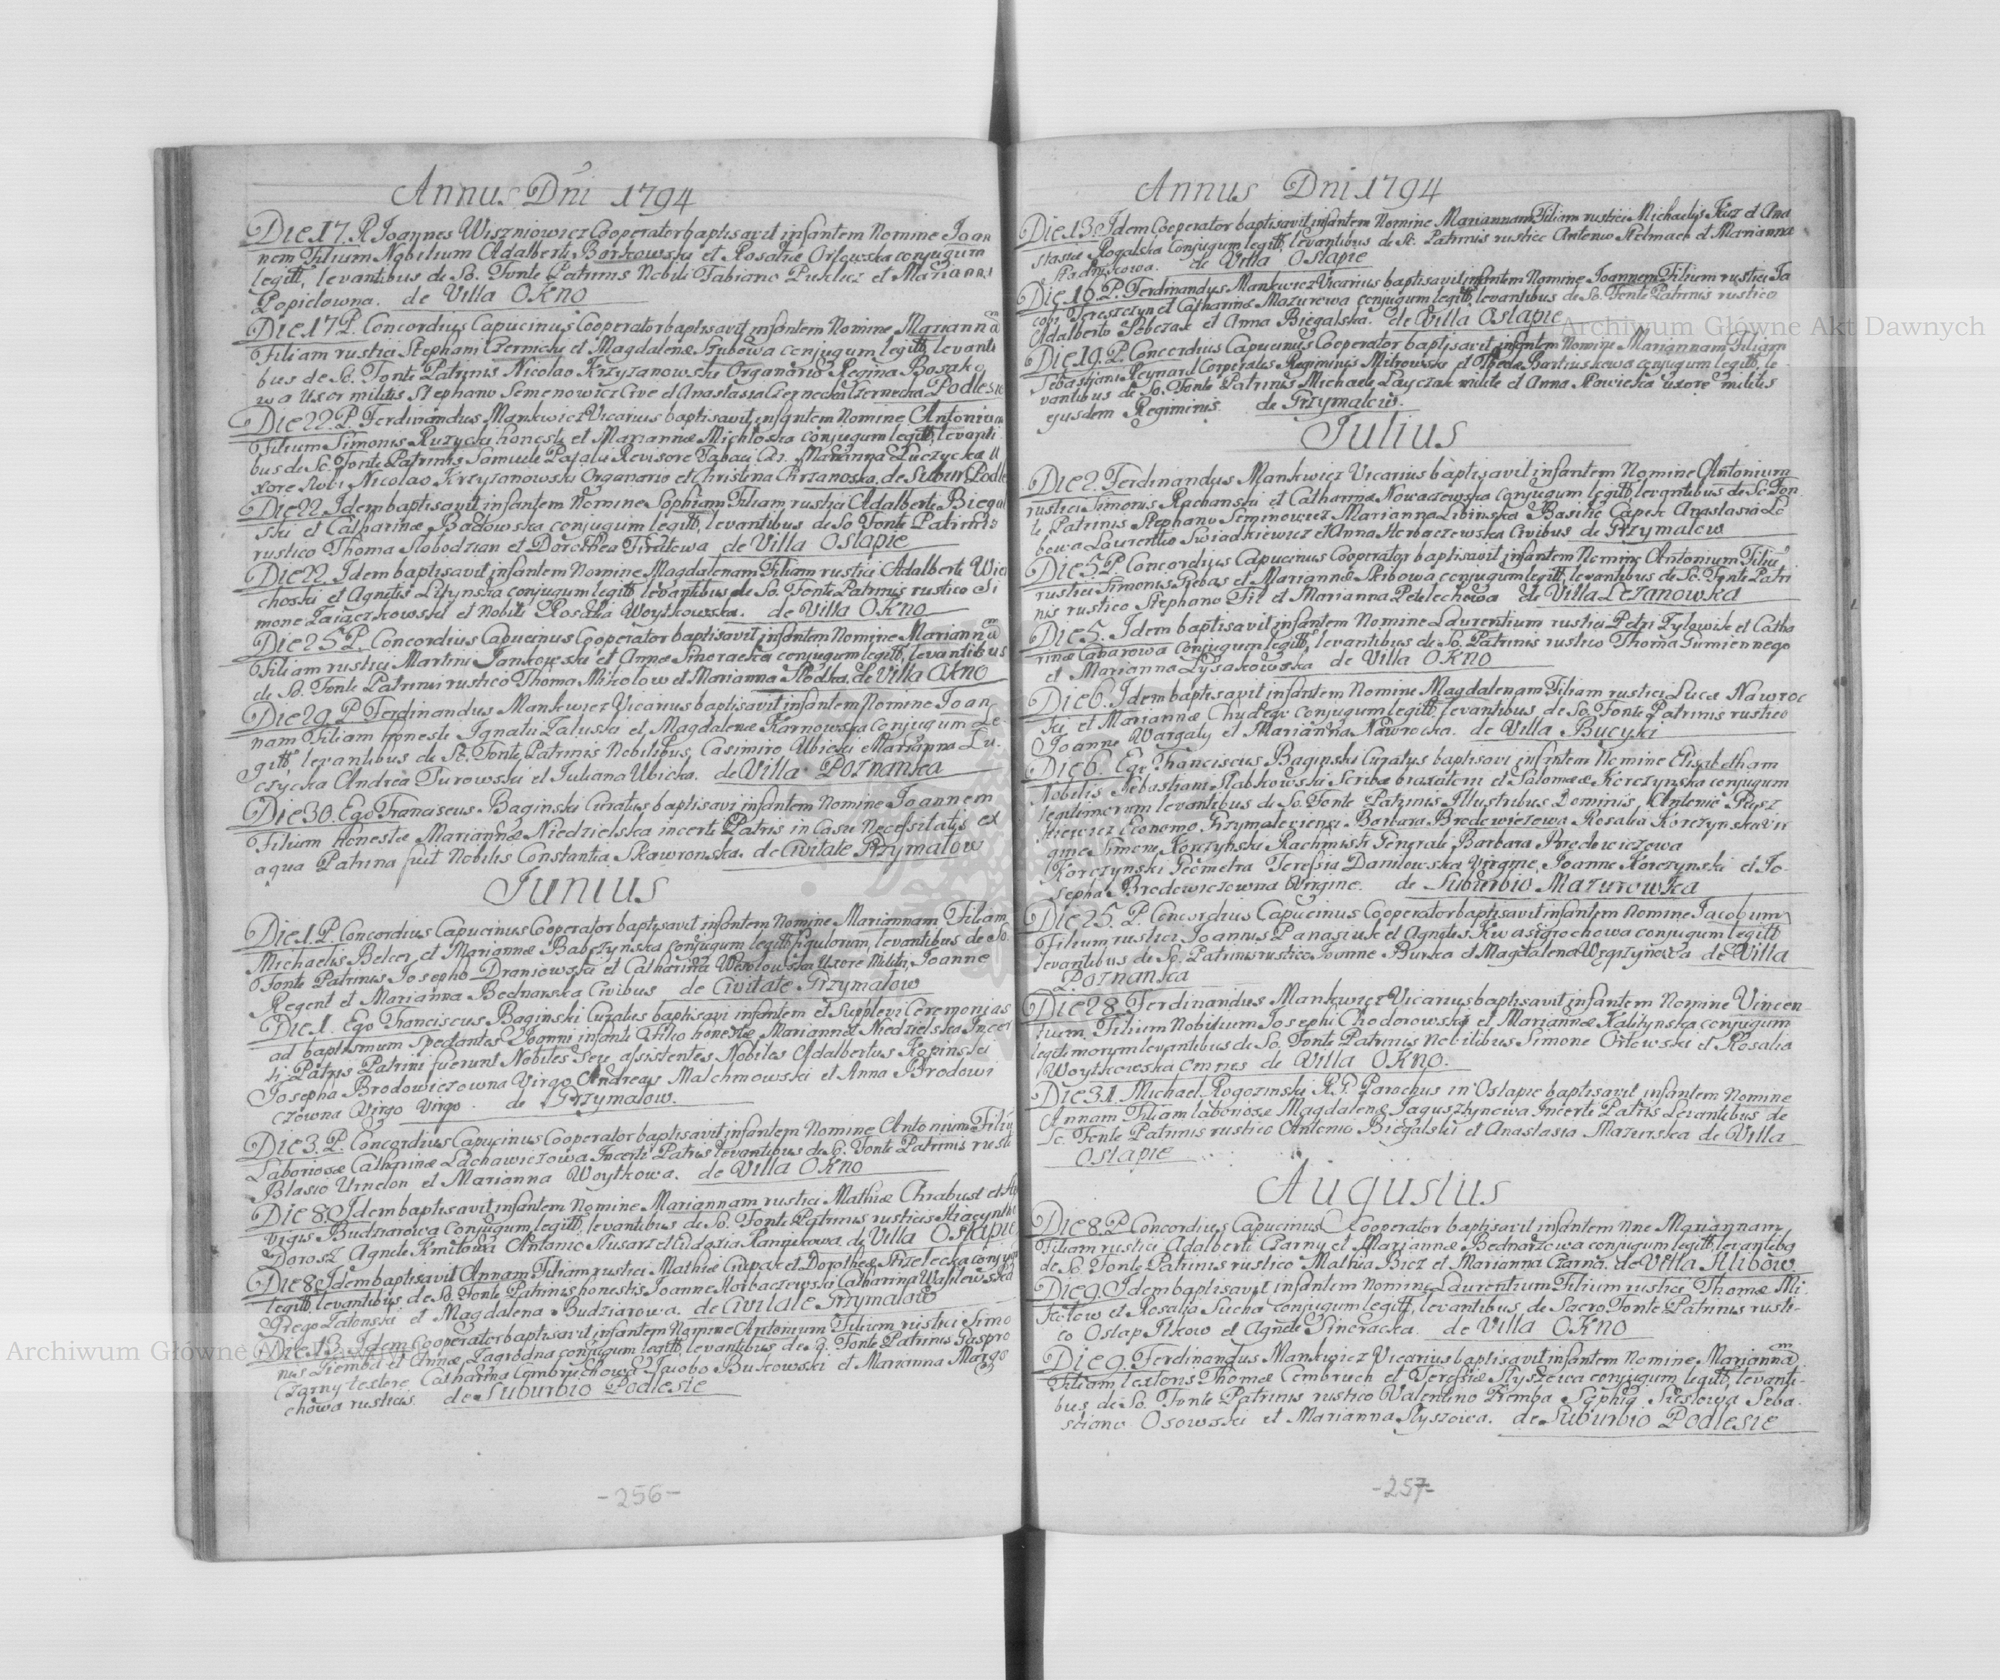 Annus Dni 1794
Die 17. R. Joannes Wiszniowicz Cooperator baptisavit infantem Nomine Joan
nem Filium Nobilium Adalberti Borkowski et Rosaliæ Orlowska conjugum
legitt, levantibus de So. Fonte Patrinis Nobili Fabiano Puklicz et Marianna
Popielowna. de Villa Okno
Die 17 P. Concordius Capucinus Cooperator baptisavit infantem Nomine Mariannam
Filiam rustici Stephani Czernicki et Magdalenæ conjugum legitt, levanti
bus de So. Fonte Patrinis Nicolao Krzyzanowski Organario Regina Bosako
wa Uxor militis Stephano Semenowicz Cive et Anastasia Czernecka Podlesie
Die 22. P. Ferdinandus Mankwicz Vicarius baptisavit infantem Nomine Antonium
Filium Simonis Ruzycki honesti et Mariannæ Michloska conjugum legitt, levanti
bus de So. Fonte Patrinis Samuele Revisore Tabaci Marianna Luczycka U
xore Nicolao Krzyzanowski Organario et Christina Chrzanoska de Subur Podle
Die 22 Idem baptisavit infantem Nomine Sophiam Filiam rustici Adalberti Biegal
ski et Catharinæ Bazlowska conjugum legitt, levantibus de So Fonte Patrinis
rustico Thoma Slobodzian et Dorothea de Villa Ostapie
Die 22. Idem baptisavit infantem Nomine Magdalenam Filiam rustici Adalberti Wier
choski et Agnetis Litynska conjugum legitt, levantibus de So. Fonte Patrinis rustico Si
mone Zaiaczkowski et Nobili Rosalia Woytkowska. de Villa Okno
Die 25 P. Concordius Capucinus Cooperator baptisavit infantem Nomine Mariannam
Filiam rustici Martini Jankowski et Annæ Sinoracka conjugum legitt, levantibus
de So. Fonte Patrinis rustico Thoma Mikolow et Marianna Slodka. de Villa Okno
Die 29 P. Ferdinandus Mankwicz Vicarius baptisavit infantem Nomine Joan
nam Filiam honeste Ignatii Zaluski et Magdalenæ Karnowska conjugum Le
gitt, levantibus de St. Fonte Patrinis Nobilibus, Casimiro Ubicki Marianna Lu
czycka Andrea Turowski et Juliana Ubicka. de Villa Poznanka
Die 30. Ego Franciscus Baginski Curatus baptisavi infantem Nomine Joannem
Filium Honestæ Mariannæ Niedzielska incerti Patris in Casu Necessitatis ex
aqua Patrina fuit Nobilis Constantia Skawronska. de Civitate Grzymalow
Junius
Die 1. P. Concordius Capucinus Cooperator baptisavit infantem Nomine Mariannam Filiam
Michaelis Belcer et Mariannæ Babczynska conjugum legitt, figulorum, levantibus de So.
Fonte Patrinis Josepho Draniowski et Catharina Wesolowska Uxore Militis, Joanne
Regent et Marianna Bednarska Civibus de Civitate Grzymalow
Die 1. Ego Franciscus Baginski Curatus baptisavi infantem et Supplevi Ceremonias
ad baptismum spectantes Joanni infanti Filio honestæ Mariannæ Niedzielska Incer
ti Patris Patrini fuerunt Nobiles Seu assistentes Nobiles Adalbertus Kopinski
Josepha Brodowiczowna Virgo Andreas Malchmowski et Anna Brodowi
czowna Virgo Virgo. de Grzymalow.
Die 3. P. Concordius Capucinus Cooperator baptisavit infantem Nomine Antonium Filiu
Laboriosæ Catharinæ Lachawiczowa Incerti Patris levantibus de So. Fonte Patrinis rusti
Blasio Urnelon et Marianna Woytkowa. de Villa Okno
Die 8. Idem baptisavit infantem Nomine Mariannam rustici Mathiæ Chrabust et
vigis Budziarowa Conjugum legitt, levantibus de So. Fonte Patrinis rusticis Hiacyntho
Dorosz Agnete Kmitowa Antonio Slusarz et Eudoxia de Villa Ostapie
Die 8. Idem baptisavit Annam Filiam rustici Mathiæ Ciupax et Dorotheæ Strzelecka conjugum
legitt, levantibus de So. Fonte Patrinis honestis Joanne Horbaczewski Catharina Waslewska
Grego Zatonski et Magdalena Budziarowa. de Civitate Grzymalow
Die 13. Idem Cooperator baptisavit infantem Nomine Antonium Filium rustici Simo
nis Kemba et Annæ Zagrodna conjugum legitt, levantibus de S. Fonte Patrinis Gaspro
Czarny textore, Catharina Cembruchowa Jacobo Bukowski et Marianna Margo
chowa rusticis. de Suburbio Podlesie
-256-
Annus Dni 1794
Die 13 Idem Cooperator baptisavit infantem Nomine Mariannam Filiam rustici Michaelis et Ana
stasiæ Rogalska Conjugum legitt, levantibus de St. Patrinis rustico Antonio Stelmach et Marianna
de Villa Ostapie
Die 16 P. Ferdinandus Mankwicz Vicarius baptisavit infantem Nomine Joannem Filium rustici Ja
cobi Tereszczyn et Catharinæ Mazurewa conjugum legitt, levantibus de So. Fonte Patrinis rustico
Adalberto et Anna Biegalska. de Villa Ostapie
Die 19. P. Concordius Capucinus Cooperator baptisavit infantem Nomine Mariannam Filiam
Sebastiani Reynard Corporalis Regiminis Mitrowski et Bartiuskowa conjugum legitt, le
vantibus de So. Fonte Patrinis Michaele Layczak milite et Anna Slawicka uxore militis
ejusdem Regiminis. de Grzymalow.
Julius
Die 2. Ferdinandus Mankwicz Vicarius baptisavit infantem Nomine Antonium
rustici Simonis Rachanski et Catharinæ Nowaczewska conjugum legitt, levantibus de So Fon
te Patrinis Stephano Seminowicz Marianna Libinska Basilio Capek Anastasia Le
bowa Laurentio Swiadkiewicz et Anna Horbaczewska Civibus de Grzymalow
Die 5 P. Concordius Capucinus Cooperator baptisavit infantem Nomine Antonium Filiu
rustici Simonis Grebas et Mariannæ Skibowa conjugum legitt, levantibus de So. Fonte Patri
nis rustico Stephano Fil et Marianna Petelechowa de Villa Lezanowka
Die 5. Idem baptisavit infantem Nomine Laurentium rustici Petri Tylowik et Catha
rinæ Cabarowa Conjugum legitt, levantibus de So. Patrinis rustico Thoma Gumiennego
et Marianna Lysakowska de Villa Okno
Die 6. Idem baptisavit infantem Nomine Magdalenam Filiam rustici Lucæ Nawroc
ki et Mariannæ conjugum legitt, levantibus de So. Fonte Patrinis rustico
Joanne Wargaly et Marianna Nawrocka. de Villa Bucyki
Die 6. Ego Franciscus Baginski Curatus baptisavi infantem Nomine Elisabetham
Nobilis Sebastiani Slabkowski Scribæ braxatorii et Salomeæ Korczynska conjugum
legitimorum levantibus de So. Fonte Patrinis Illustribus Dominis, Antonio
kiewicz Economo Grzymaloviensi Barbara Brodowiczowa Rosalia Korczynska Vir
gine Simone Korczynski Rachmistr General Barbara Brodowiczowa
Korczynski Geometra Teressia Danilowska Virgine, Joanne Korczynski et Jo-
sepha Brodowiczowna Virgine. de Suburbio Mazurowka
Die 25. P. Concordius Capucinus Cooperator baptisavit infantem Nomine Jacobum
Filium rustici Joannis Panasiuk et Agnetis Kwasigrochowa conjugum legitt
levantibus de So. Patrinis rustico Joanne Burka et Magdalena Wegrzynowa de Villa
Poznanka
Die 28. Ferdinandus Mankwicz Vicarius baptisavit infantem Nomine Vincen-
tium Filium Nobilium Josephi Chodorowski et Mariannæ Kalitynska conjugum
legitimorum levantibus de So. Fonte Patrinis Nobilibus Simone Orlowski et Rosalia
Woytkowska omnes de Villa Okno.
Die 31. Michael Rogozinski R. G. Parochus in Ostapie baptisavit infantem Nomine
Annam Filiam laboriosæ Magdalenæ Jagusztynowa Incerti Patris Levantibus de
So. Fonte Patrinis rustico Antonio Biegalski et Anastasia Mazurska de Villa
Ostapie
Augustus
Die 8. P. Concordius Capucinus Cooperator baptisavit infantem Nne Mariannam
Filiam rustici Adalberti Czarny et Mariannæ Bednarzowa conjugum legitt, levantibq
de So. Fonte Patrinis rustico Mathia Bicz et Marianna Czarna. de Villa Hlibow.
Die 9. Idem baptisavit infantem Nomine Laurentium Filium rustici Thomæ Mi-
kolow et Rosalia Sucha conjugum legitt, levantibus, de Sacro Fonte Patrinis rusti-
co Ostap Ilkow et Agnete Sinoracka. de Villa Okno
Die 9. Ferdinandus Mankwicz Vicarius baptisavit infantem Nomine Mariannam
Filiam textoris Thomæ Cembruch et Teressiæ Slyszowa conjugum legitt, levanti-
bus de So. Fonte Patrinis rustico Valentino Kemba Sophia Susłowa Seba-
stiano Osowski et Marianna Slyszowa. de Suburbio Podlesie
-257-
Archiwum Główne Akt Dawnych
Archiwum Główne